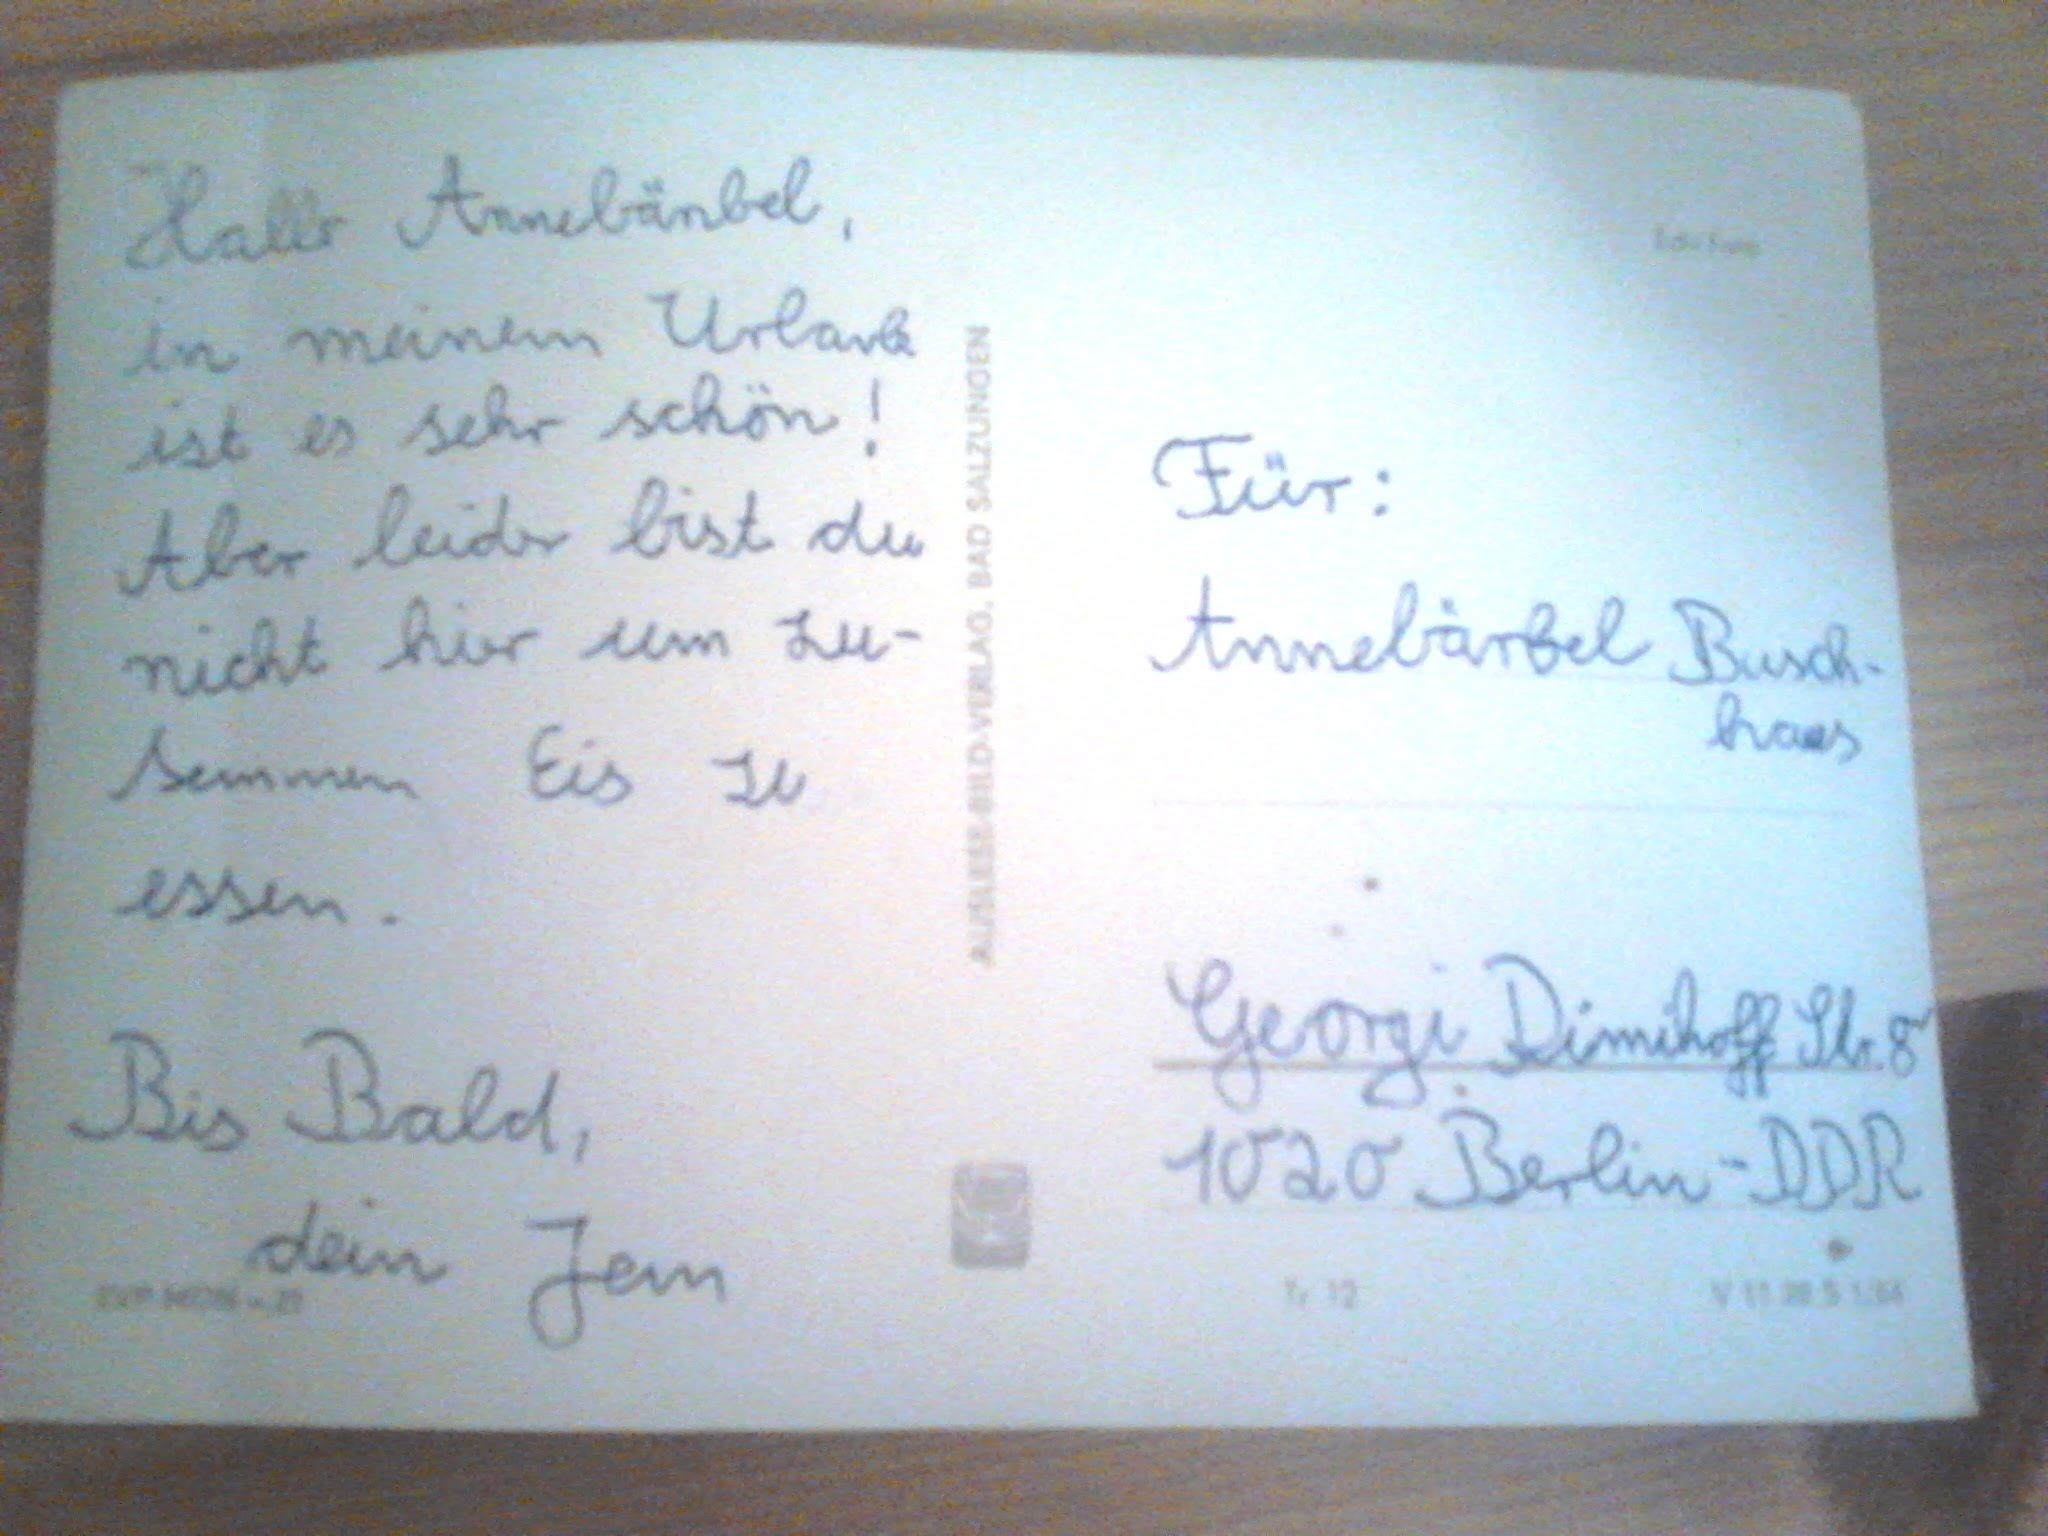 Hallo Annebärbel,
in meinem Urlaub
ist es sehr schön!
Aber leider bist du
nicht hier um zu-
sammen Eis zu
essen.
Bis Bald,
dein Jem
AUSLESE-BILD-VERLAG, BAD SALZUNGEN
Für:
Annebärbel Busch-
haus
Georgi Dimitroff Str. 8
1020 Berlin-DDR